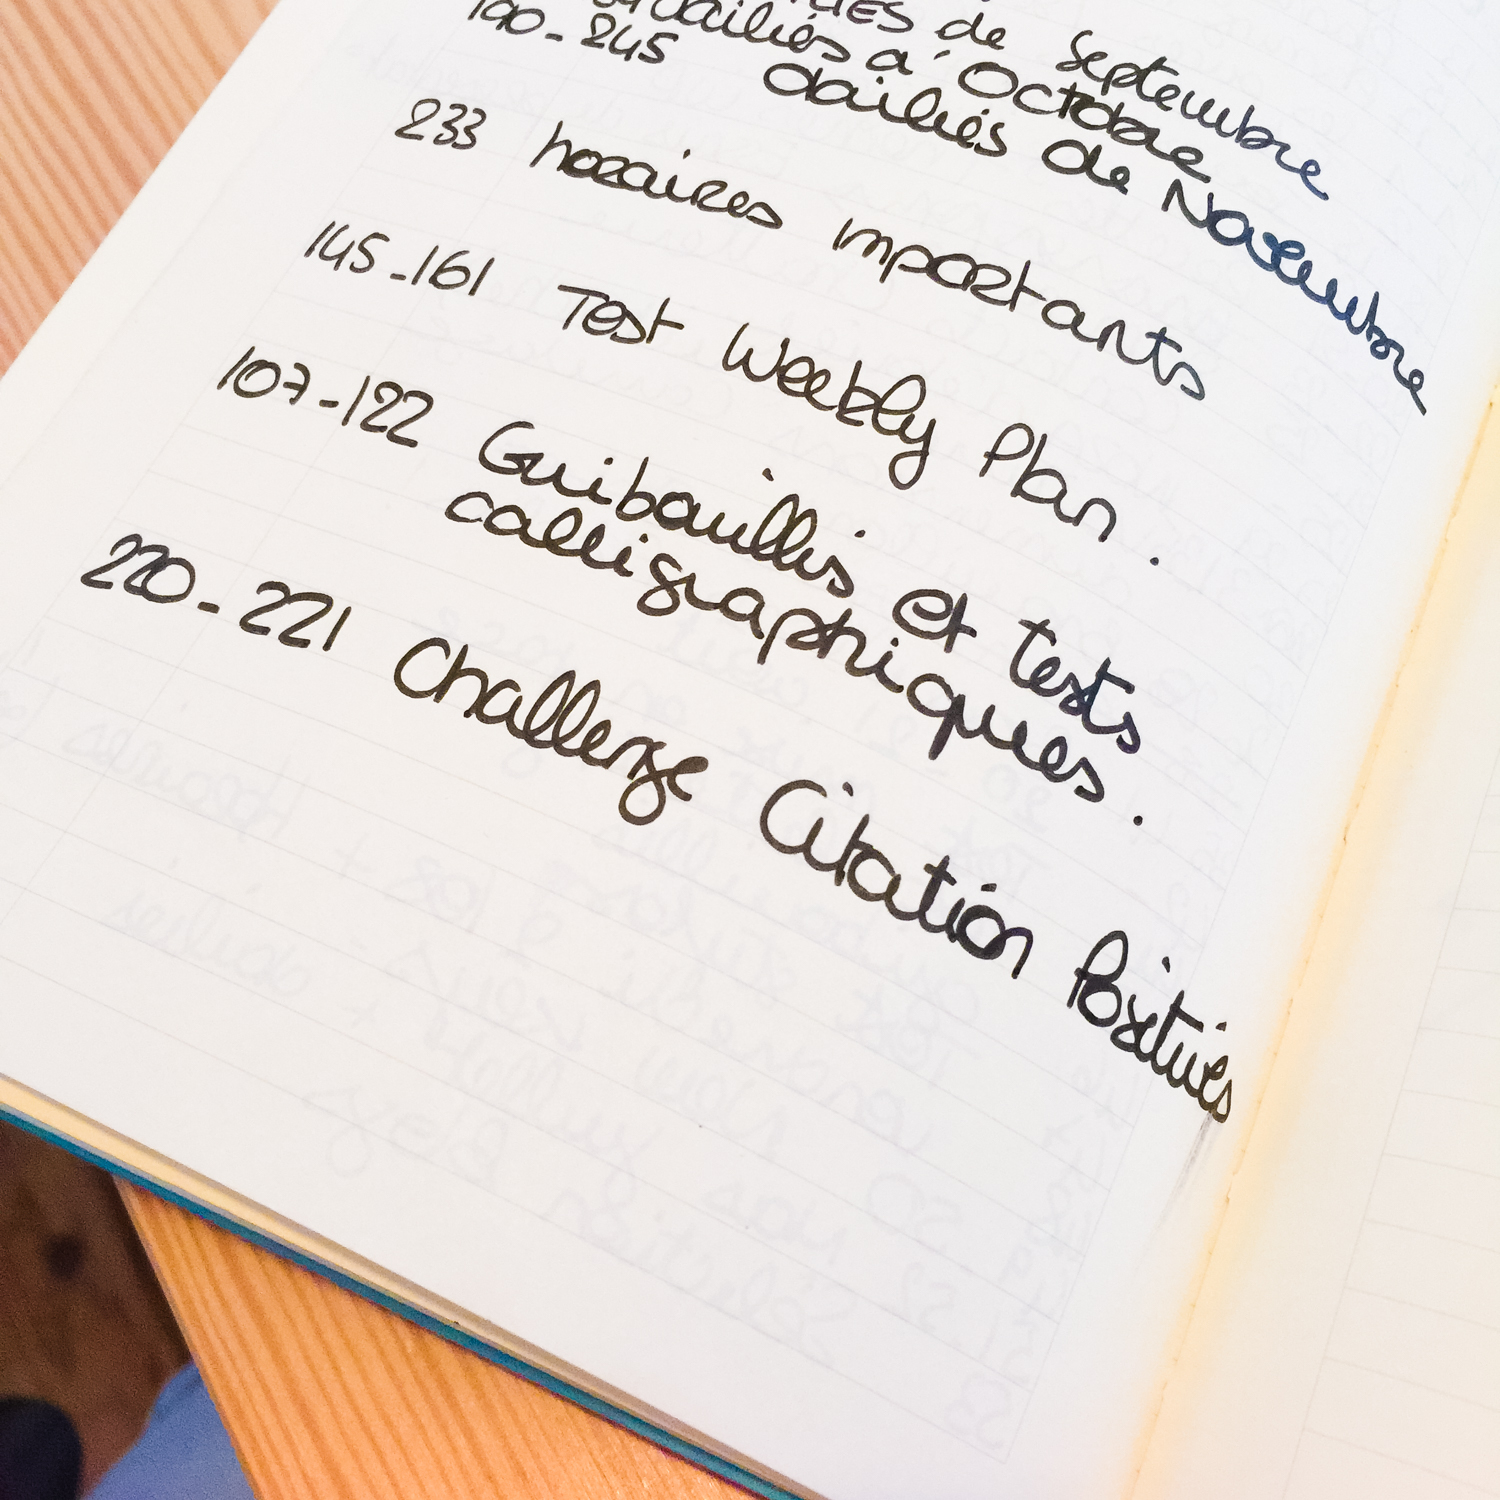 de Septembre
dailiés à Octobre
190-245 dailiés de Novembre
233 horaires importants
145-161 Test Weekly Plan.
107-122 Guibouillis et tests
calligraphiques.
220-221 Challenge Citation Positives